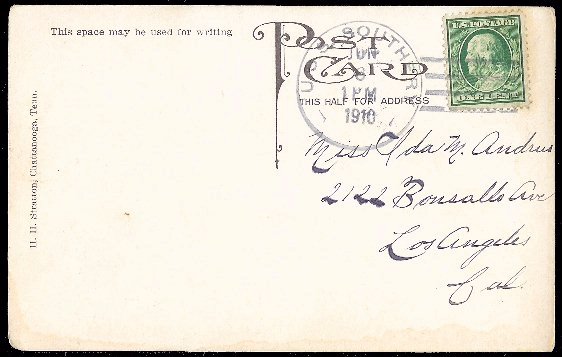 This space may be used for writing
POST CARD
THIS HALF FOR ADDRESS
JUN
8
1 PM
1910
U.S. POSTAGE
Miss Ida M. Andrus
2122 Bonsallo Ave
Los Angeles
Cal.
H. H. Stratton, Chattanooga, Tenn.